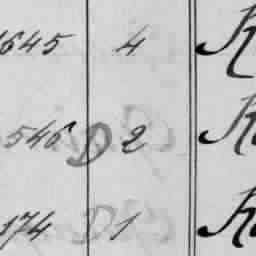 1645 4
546 D 2
174 D 1